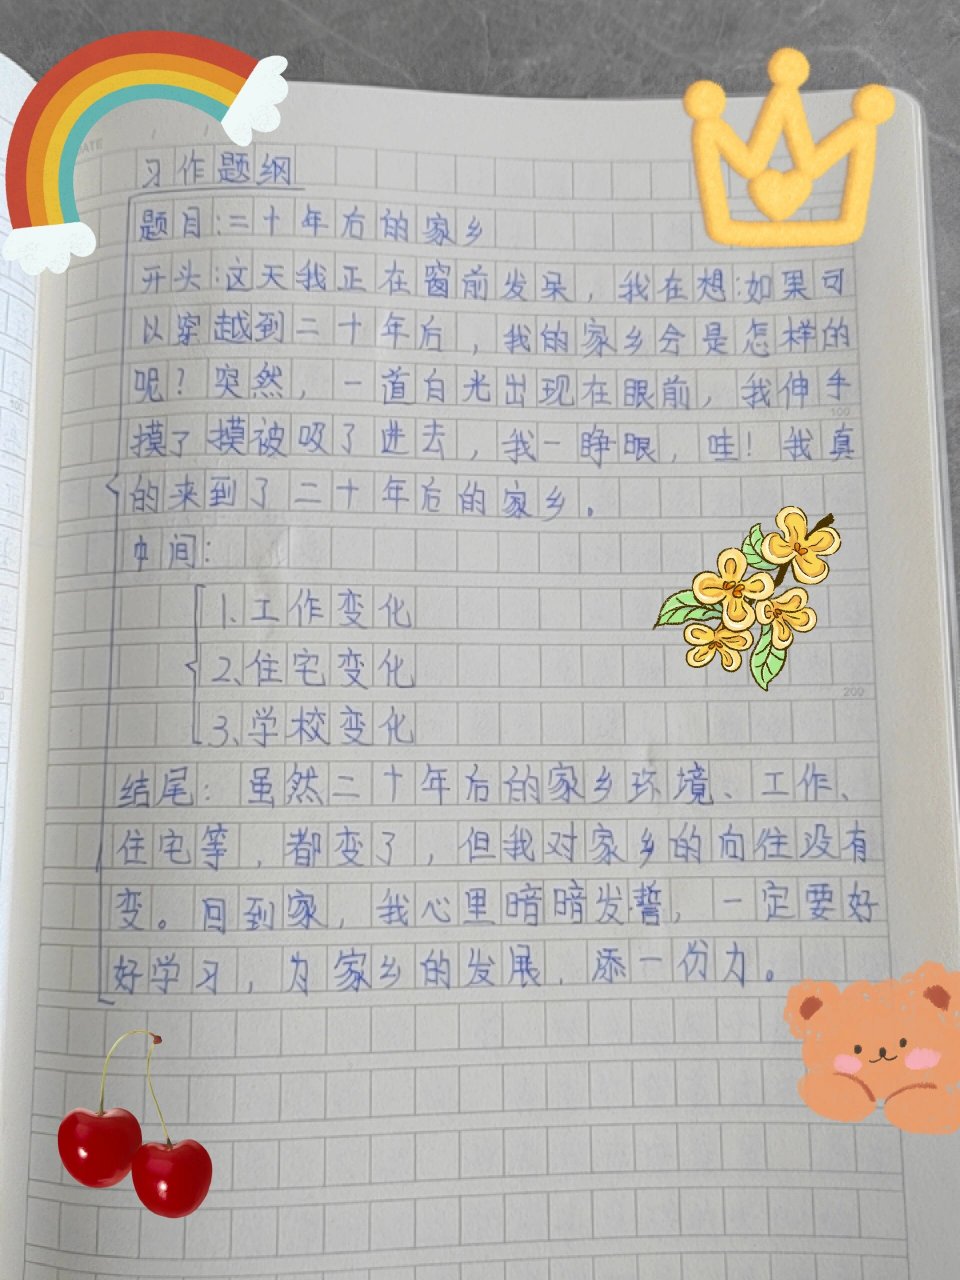 ATE / /
习作题纲
题目:二十年后的家乡
开头:这天我正在窗前发呆，我在想:如果可
以穿越到二十年后，我的家乡会是怎样的
呢？突然，一道白光出现在眼前，我伸手
100
摸了摸被吸了进去，我一睁眼，哇！我真
的来到了二十年后的家乡。
中间：
1、工作变化
2、住宅变化
200
3、学校变化
结尾：虽然二十年后的家乡环境、工作、
住宅等，都变了，但我对家乡的向往没有
变。回到家，我心里暗暗发誓，一定要好
好学习，为家乡的发展，添一份力。